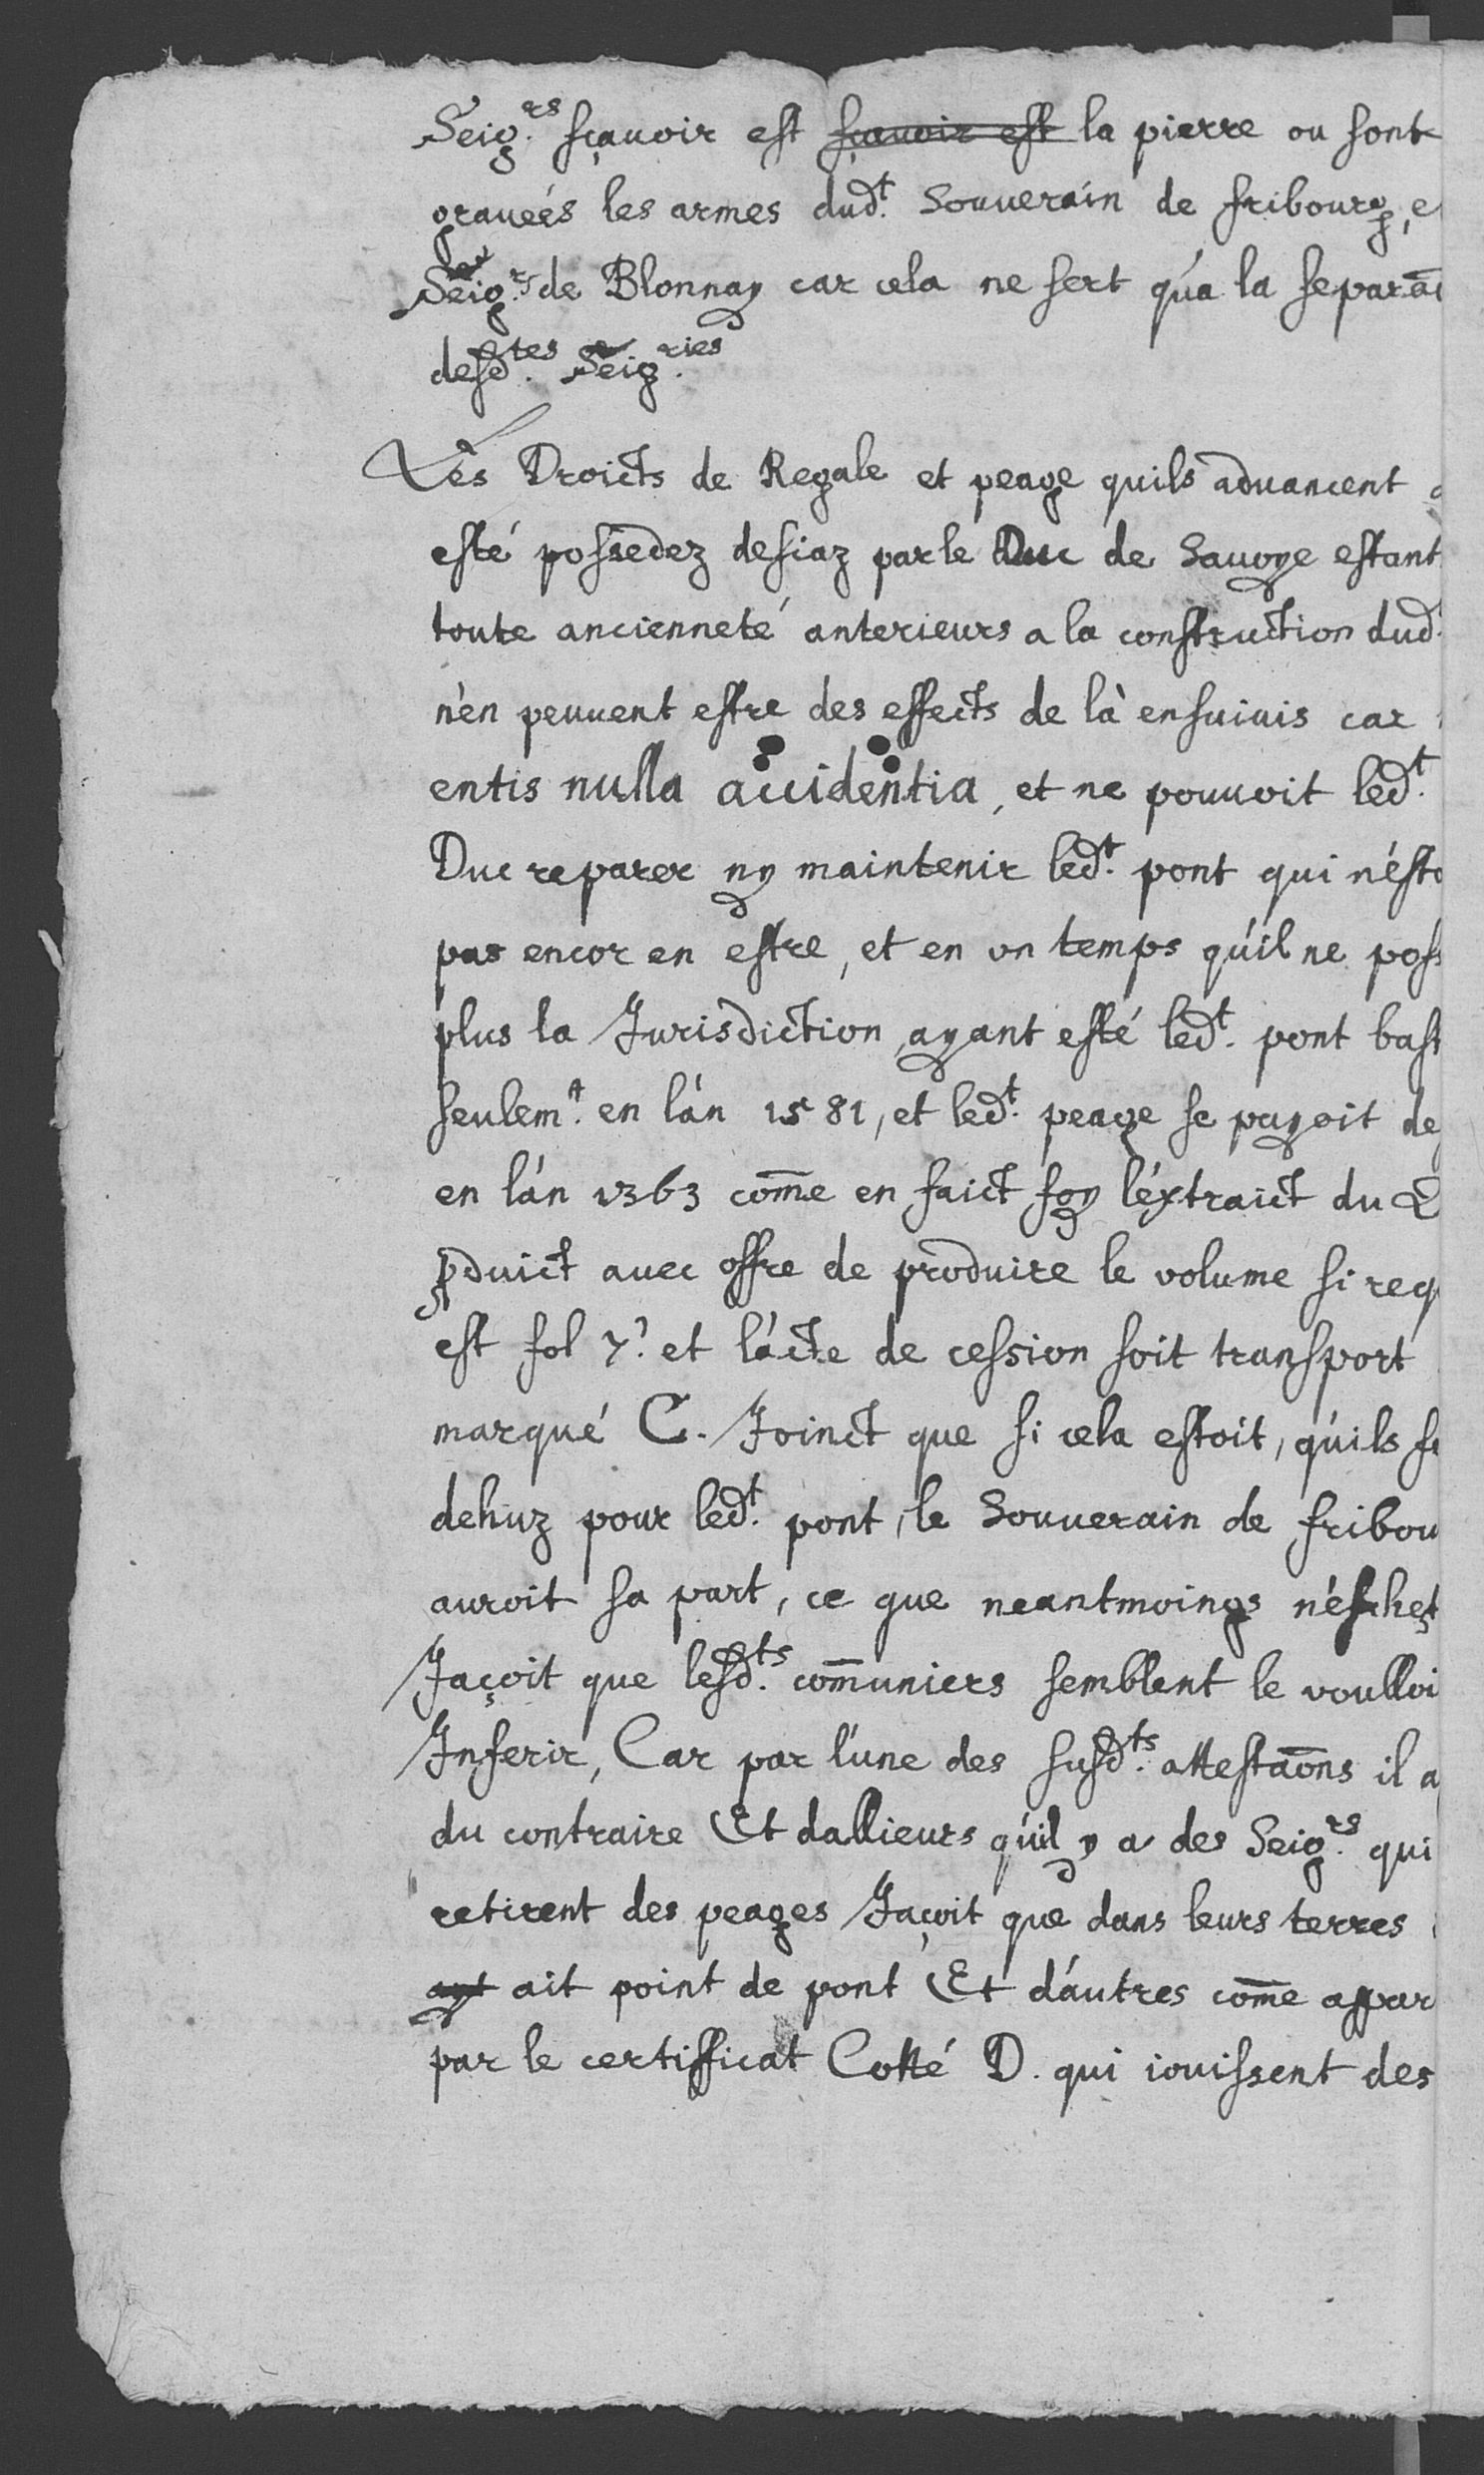 Seig.rs sçauoir est sçauoir est la pierre ou sont
grauées les armes dud.t Souuerain de fribourg, e
Seig.r de Blonnay car cela ne sert qu'a la separa
desd.tes Seig.ries
Les Droicts de Regale et peage quils aduancent
esté possedez desiaz par le Duc de Sauoye estant
toute ancienneté anterieurs a la construction dud.
n'en peuuent estre des effects de là ensuiuis car
entis nulla accidentia, et ne pouuoit led.t
Duc reparer ny maintenir led.t pont qui n'esto
pas encor en estre, et en vn temps qu'il ne poss
plus la Jurisdiction, ayant esté led.t pont bast
seulem.t en l'an 1581, et led.t peage se payoit de
en l'an 1363 com̄e en faict foy l'extraict du
ꝓduict auec offre de produire le volume si req
est fol 7.? et l'acte de cession soit transport
marqué C. Joinct que si cela estoit, qu'ils
dehuz pour led.t pont, le Souuerain de fribou
auroit sa part, ce que neantmoings n'eschet
Jaçoit que lesd.ts com̄uniers semblent le voulloi
Inferir, Car par l'une des susd.ts attestaōns il a
du contraire Et dallieurs qu'il y a des Seig.rs qui
retirent des peages Jaçoit que dans leurs terres
ayt ait point de pont Et d'autres com̄e appar
par le certifficat Cotté D. qui iouissent des